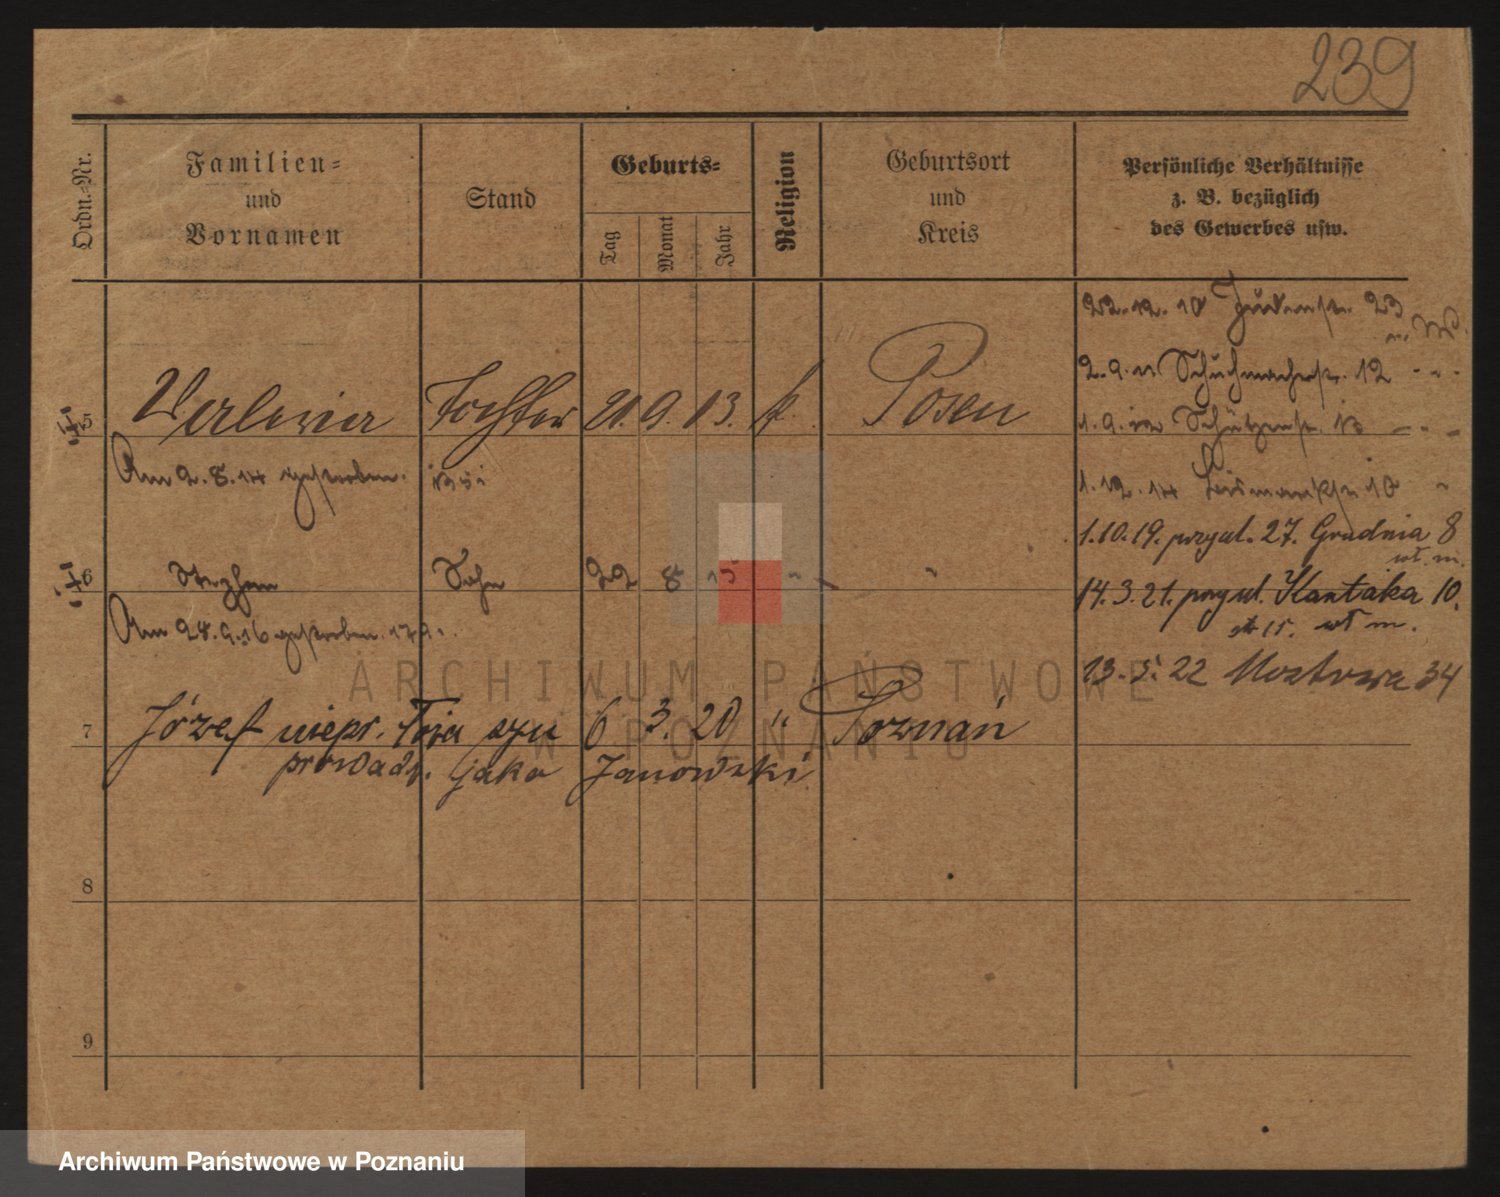 239
Ordn.-Nr.
Familien-
und
Vornamen
Stand
Geburts-
Tag
Monat
Jahr
Religion
Geburtsort
und
Kreis
Persönliche Verhältnisse
z. B. bezüglich
des Gewerbes usw.
22.12.10 Judenstr. 23
2.9.11 Schuhmacherstr. 12 " " "
5 Valeria Tochter 21. 9. 13. k. Posen
1.9.12 Schützenstr.
Am 2.8.14 gestorben.
1.12.14 Bismarckstr 10 "
1.10.19. przyul. 27. Grudnia 8
wł. m.
6 Stephan Sohn 22 8 15 " "
14.3.21. przyul. Kantaka 10.
wł m.
Am 24.9.16 gestorben.
13.5.22 Mostowa 34
7 Józef niepr. Toja syn 6 3. 20 " Poznań
prowadz. jako Janowski
8
9
ARCHIWUM PAŃSTWOWE
W POZNANIU
Archiwum Państwowe w Poznaniu